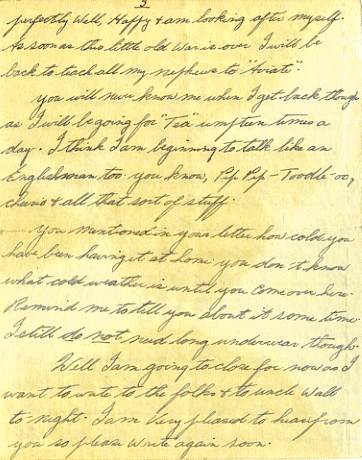 2
perfectly Well, Happy & am looking after myself.
As soon as this little old War is over I will be
back to teach all my nephews to "Aviate".
You will never know me when I get back, though
as I will be going for "Tea" umpteen times a
day. I think I am beginning to talk like an
Englishman too you know, Pip Pip - Toodle-oo,
cheerio & all that sort of stuff.
You mentioned in your letter how cold you
have been having it at home you don't know
what cold weather is until you come over here.
Remind me to tell you about it some time.
I still do not need long underwear though.
Well I am going to close for now as I
want to write to the folks & to Uncle Walt
to-night. I am Very pleased to hear from
you so please write again soon.